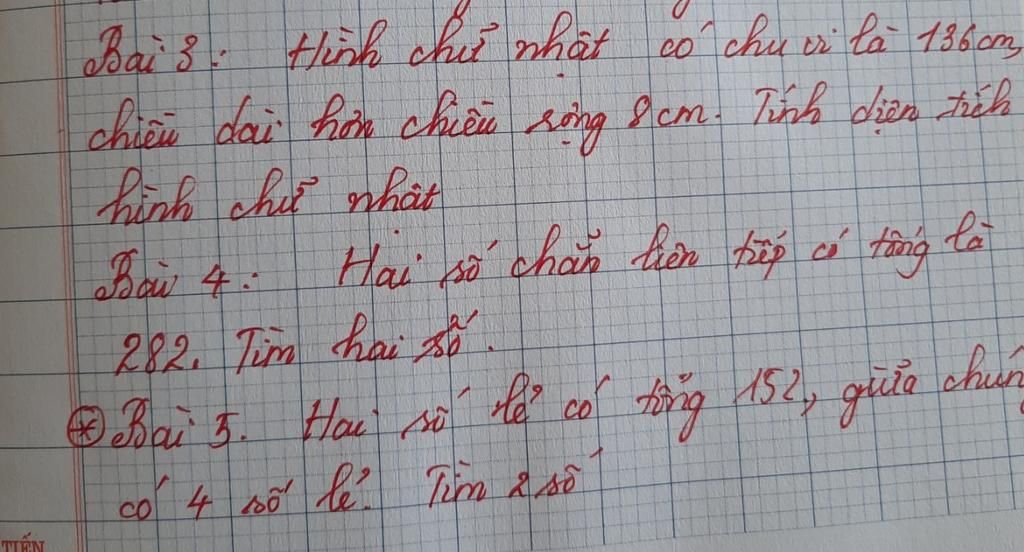 Bài 3: Hình chữ nhật có chu vi là 136cm,
chiều dài hơn chiều rộng 8cm. Tính diện tích
hình chữ nhật
Bài 4: Hai số chẵn liên tiếp có tổng là
282. Tìm hai số.
* Bài 5. Hai số lẻ có tổng 152, giữa chúng
có 4 số lẻ. Tìm 2 số
TIẾN